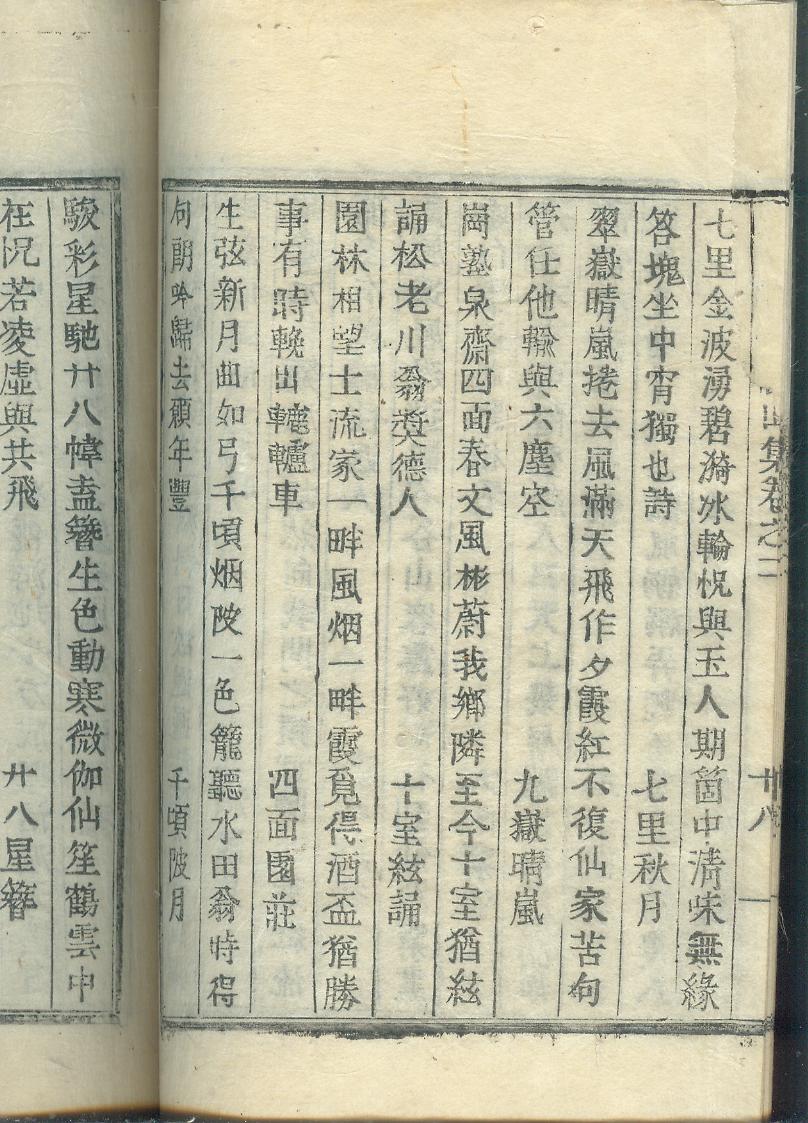 集卷之二 廿八
七里金波湧碧漪氷輪怳與玉人期箇中淸味無緣
答塊坐中宵獨也詩 七里秋月
翠嶽晴嵐捲去風滿天飛作夕霞紅不復仙家苦句
管任他輸與六塵空 九嶽晴嵐
崗塾泉齋四面春文風彬蔚我鄕隣至今十室猶絃
誦松老川翁奬德人 十室絃誦
園林相望士流家一畔風烟一畔霞覓得酒盃猶勝
事有時輓出轆轤車 四面園莊
生弦新月曲如弓千頃烟陂一色籠聽水田翁時得
句朗吟歸去願年豐 千頃陂月
駿彩星馳廿八幃盍簪生色動寒微伽仙笙鶴雲中
在怳若凌虛與共飛 廿八星簪